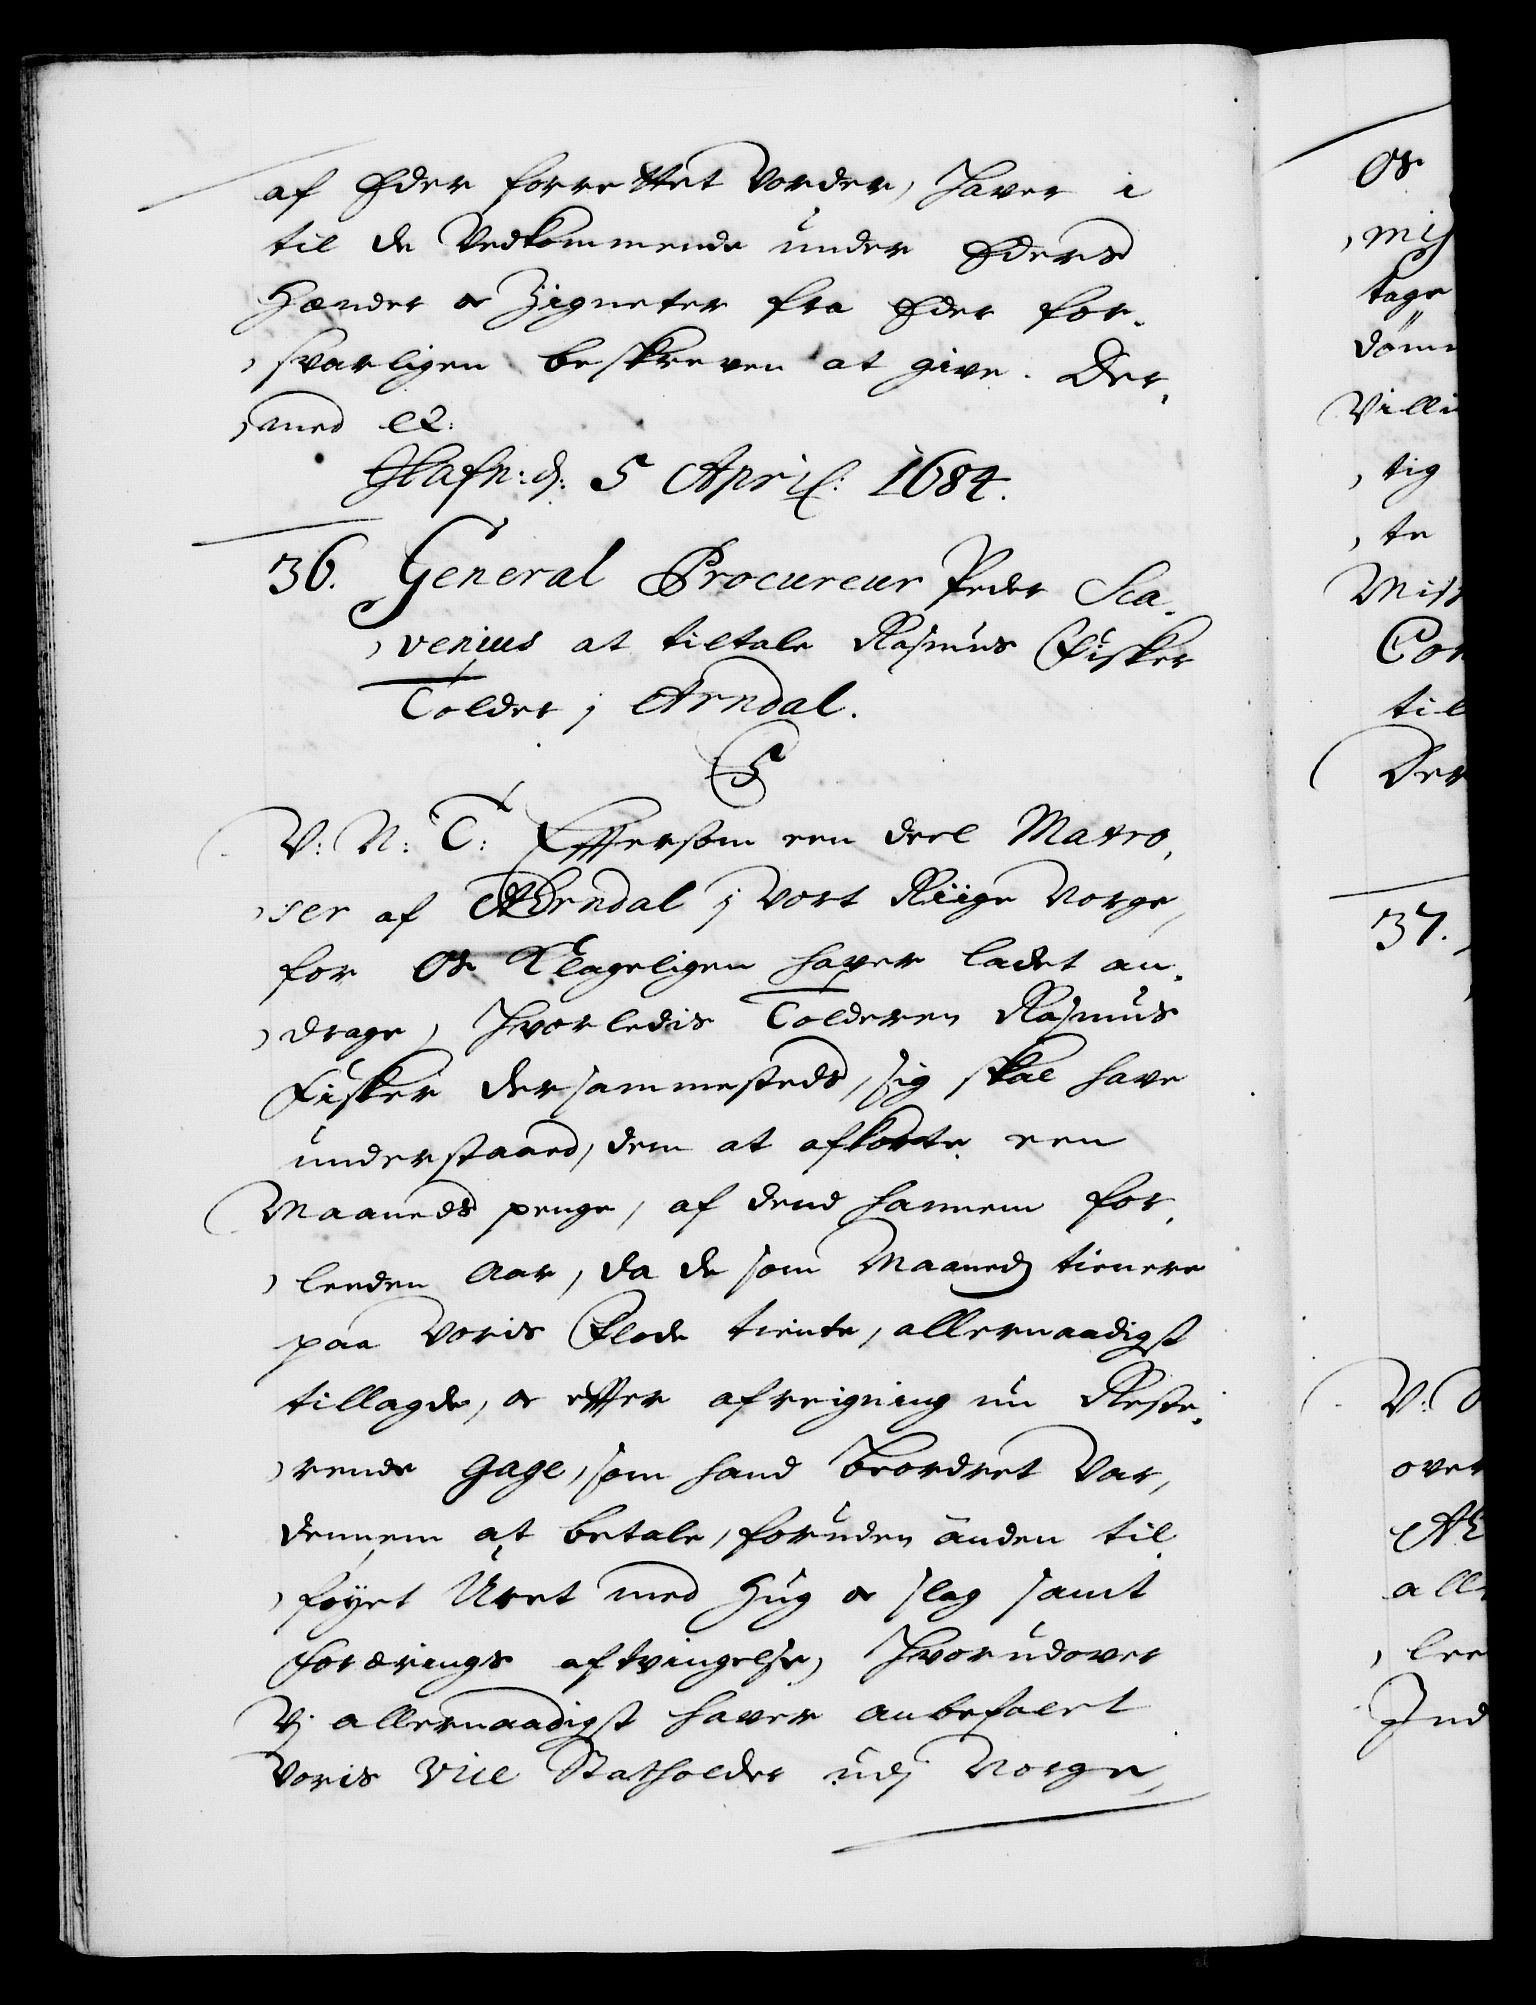 af Eder forrettet vorder, haver i
til de Vedkommende under Eders
Hænder oc Zigneter fra Eder for-
svarligen beskreven at give. Der-
med etc:
Hafn: d: 5 April: 1684.
36. General Procureur Peder Sca-
venius at tiltale Rasmus Fisker
Tolder i Arndal.
C5
V: N: T: Effersom een deel Matro-
ser af Arndal i vort Riige Norge,
for Os Klageligen haver ladet an-
drage, hvorledis Tolderen Rasmus
Fisker dersammesteds, sig skal have
understaaed, dem at afkorte een
Maaneds penge, af dend hannem for-
leeden Aar, da de som Maaneds tienere
paa Voris Flode tiente, allernaadigst
tillagde, oc effter afreigning nu Reste-
rende Gage, som hand beordret var,
dennem at betale, foruden anden til-
føyet Uret med Hug oc slag samt
forærings aftvingelse, hvorudover
Vj allernaadigst haver anbefalet
Voris Vice Statholder udj Norge,
Os
mis
tage
döm
Villi
tig
te
Miss
Con
til
Der
37.
V:
over
all
lee
Ind